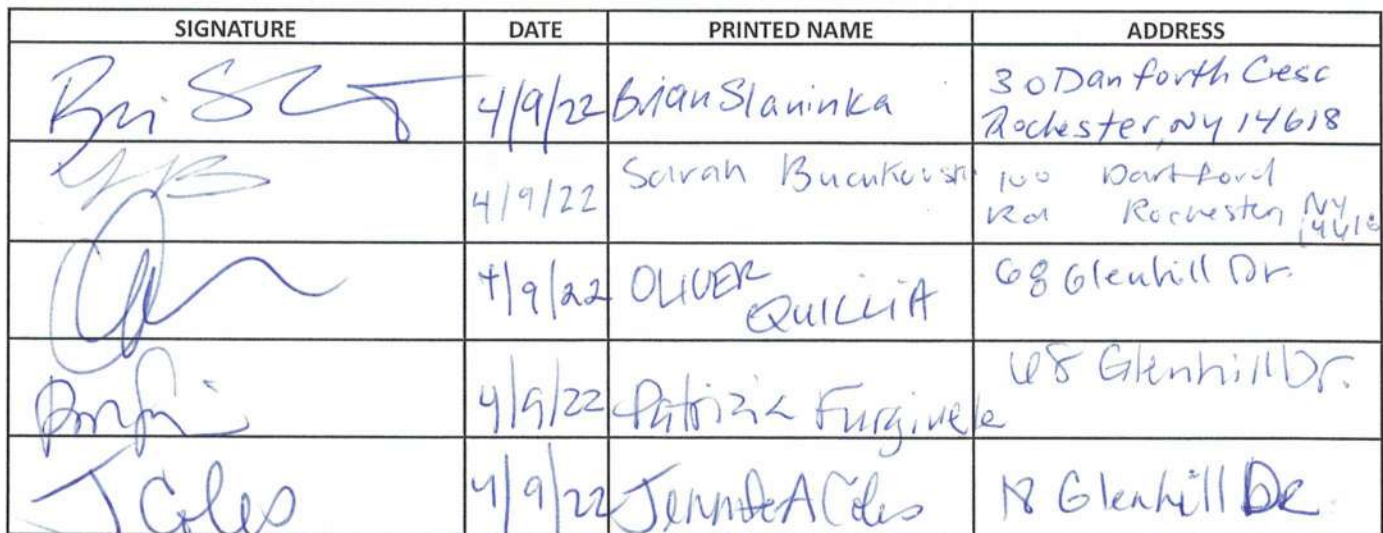 SIGNATURE DATE PRINTED NAME ADDRESS
4/9/22 Brian Slaninka 30 Danforth Cresc
Rochester, NY 14618
4/9/22 Sarah 100 Dartford
Rd Rochester NY
4/9/22 OLIVER 68 Glenhill Dr.
4/9/22 Patrizia Furgiuele 68 Glenhill Dr.
J Coles 4/9/22 Jennifer A Coles 18 Glenhill Dr